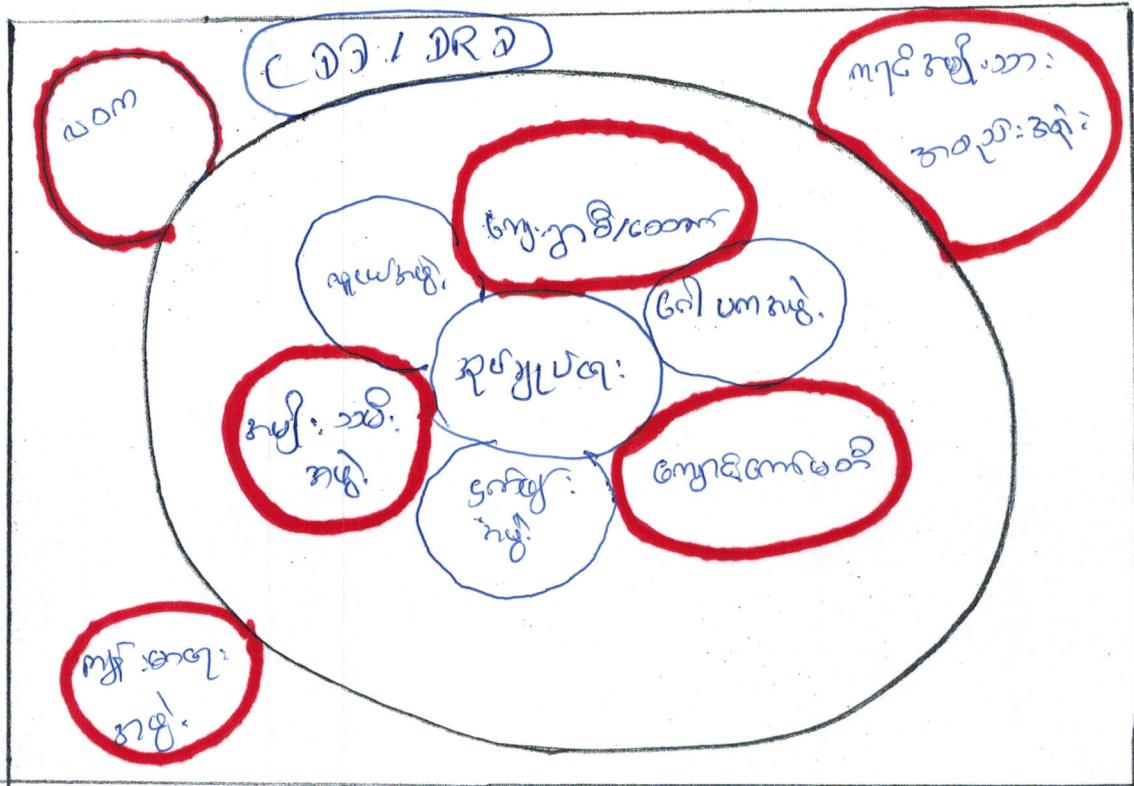 CDD / DRD
လဝက
ကရင်အမျိုးသား
အစည်းအရုံး
ကျေးရွာစီ/ထောက်
လူငယ်အဖွဲ့
ဂေါပကအဖွဲ့
အုပ်ချုပ်ရေး
အမျိုးသမီး
အဖွဲ့
ကျောင်းကော်မတီ
အဖွဲ့
ကျန်းမာရေး
အဖွဲ့